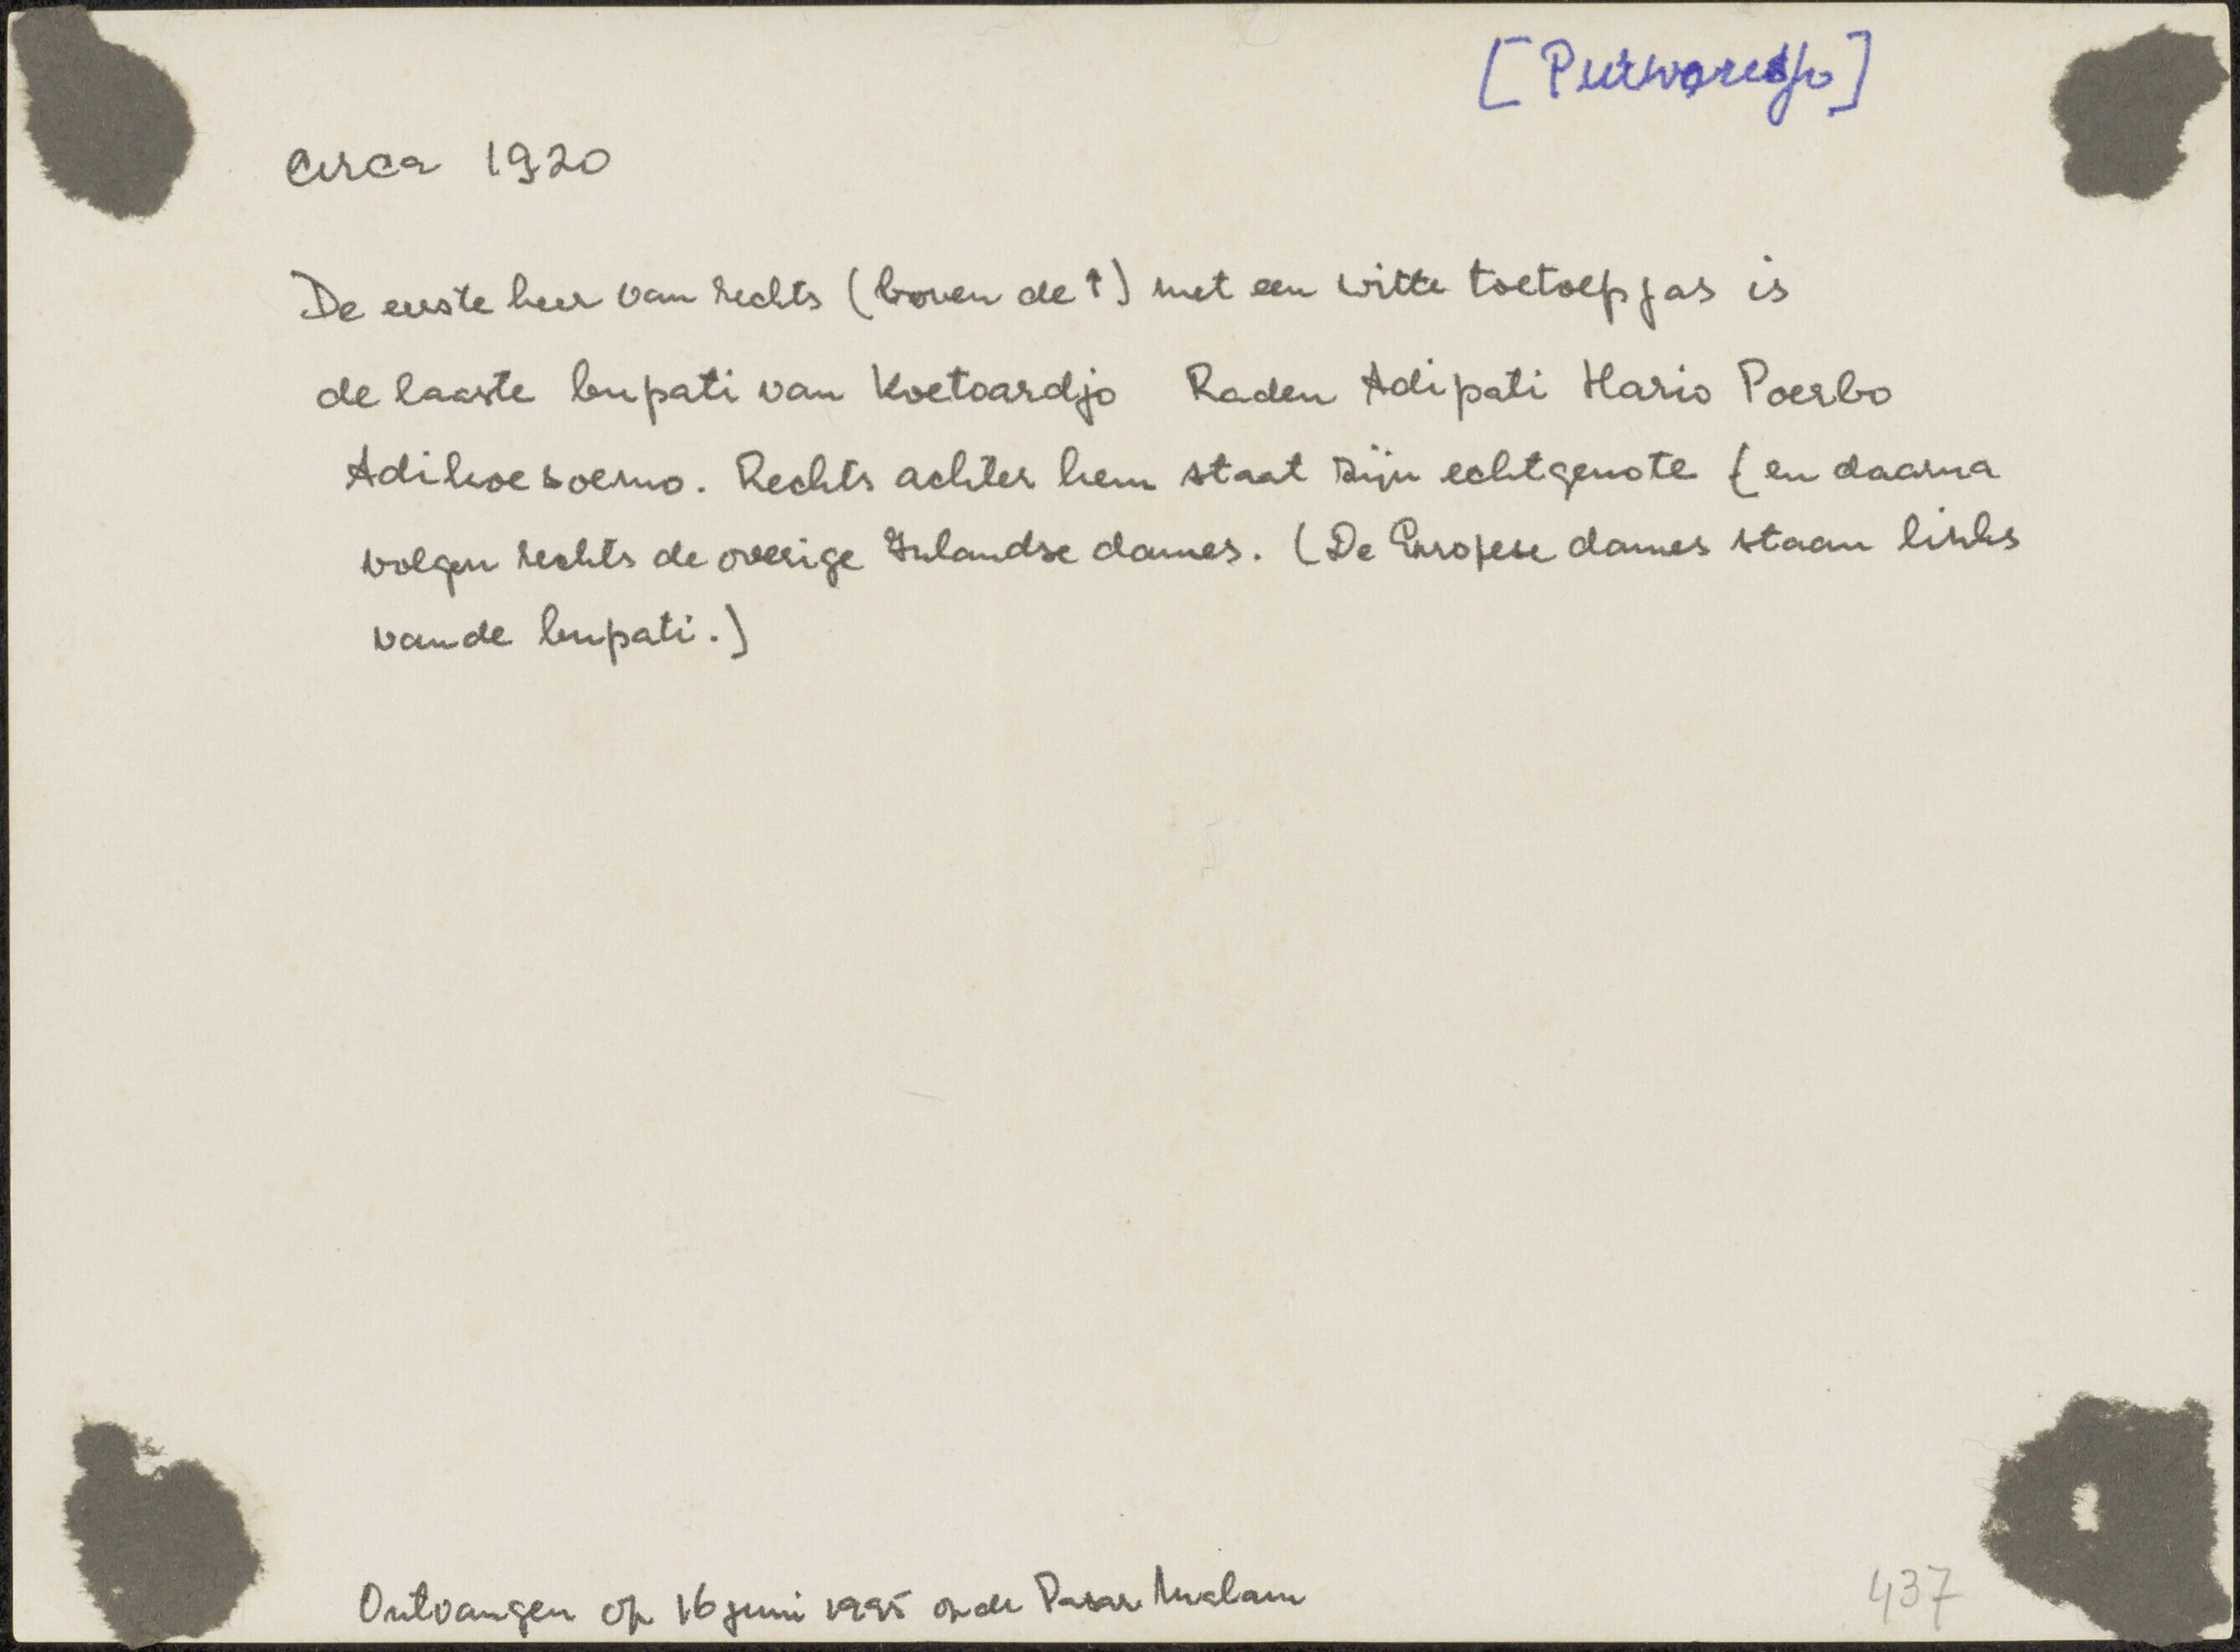 [Purworedjo]
circa 1920
De eerste heer van rechts (boven de ↑) met een witte toetoepjas is
de laaste bupati van Koetoardjo Raden Adipati Hario Poerbo
Adikoesoemo. Rechts achter hem staat zijn echtgenote (en daarna
volgen rechts de overige Inlandse dames. (De Europese dames staan links
van de bupati.)
Ontvangen op 16 juni 1995 op de Pasar Malam
437